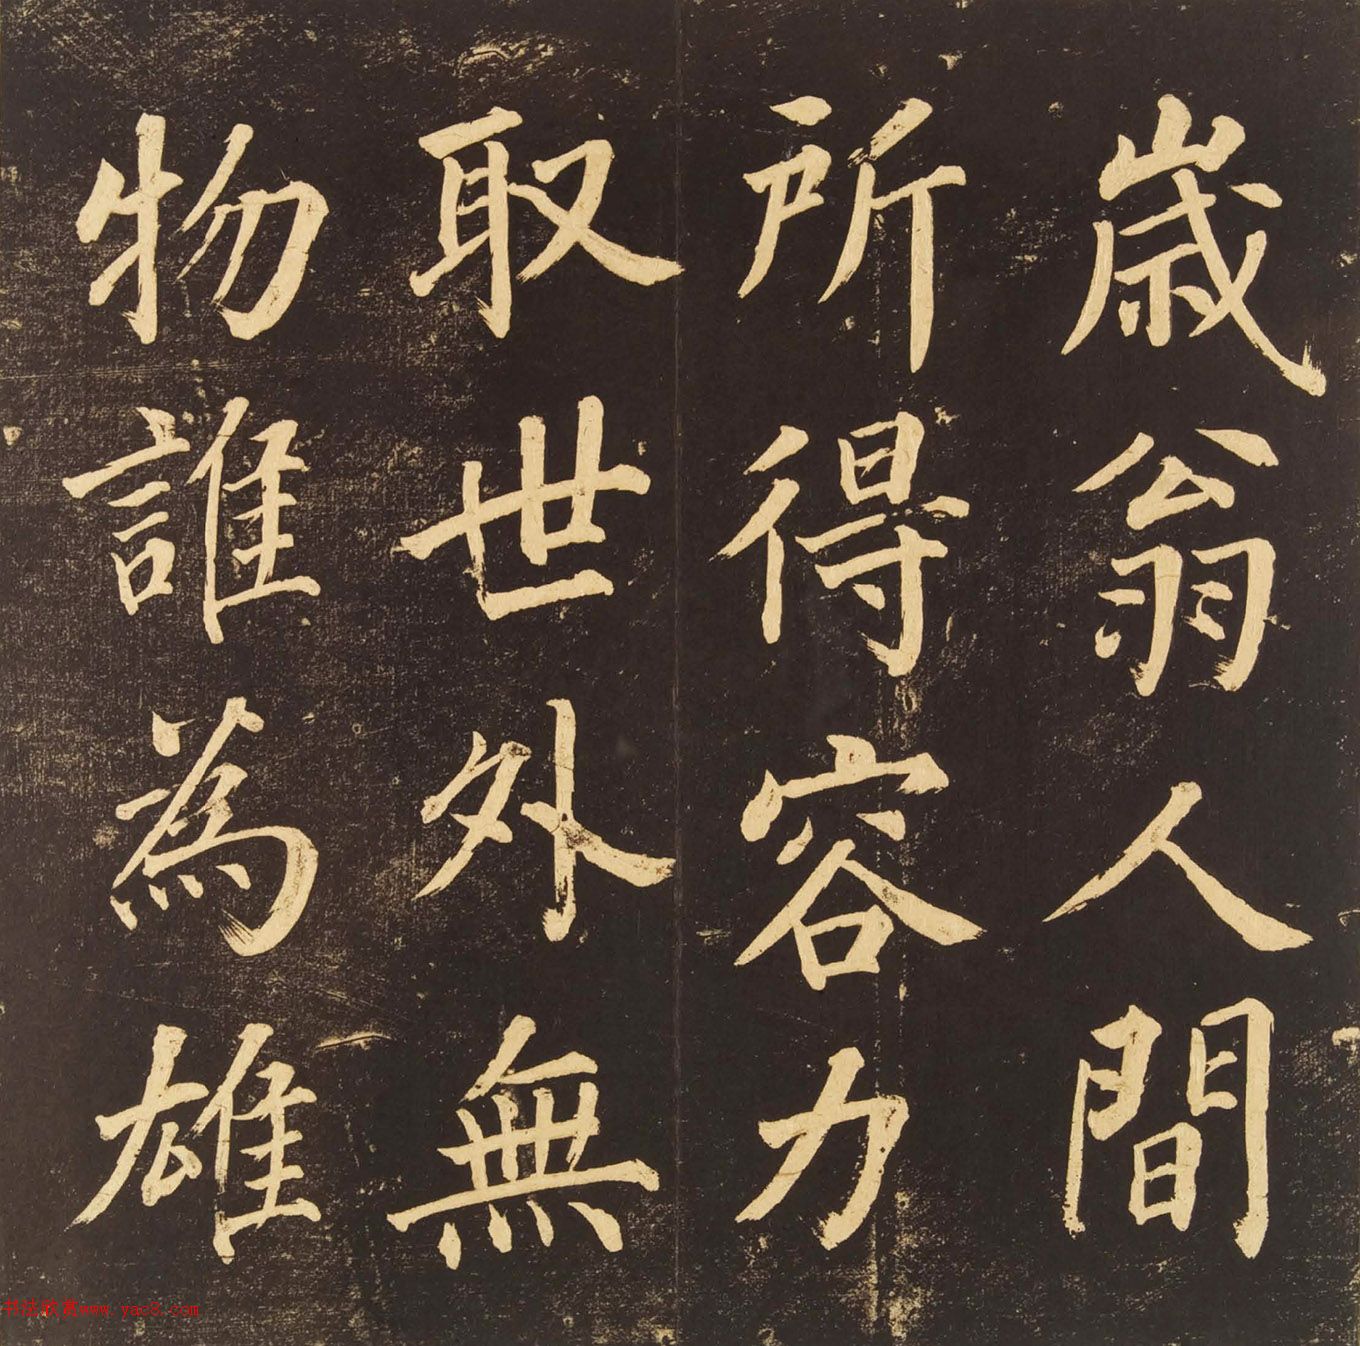 歲翁人間
所得容力
取世外無
物誰為雄
书法欣赏www.yac8.com